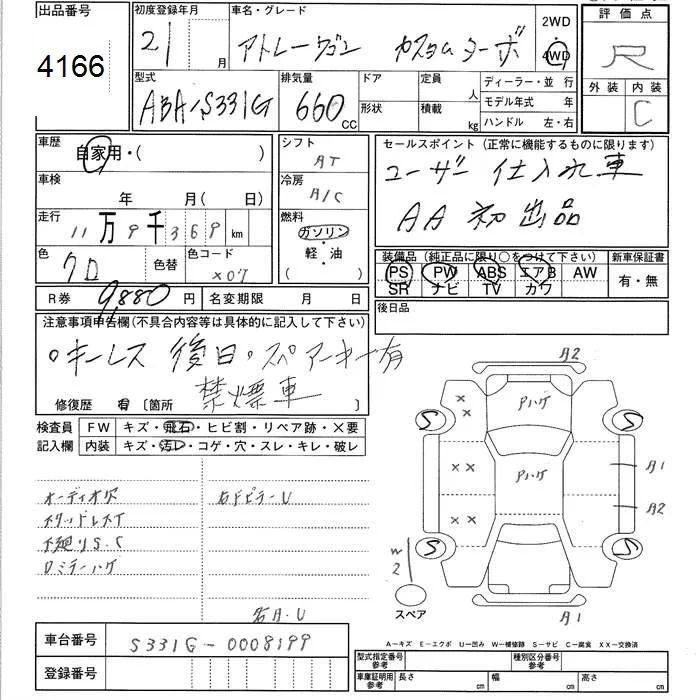 出品番号
4166
初度登録年月
21 月
車名・グレード
アトレーワゴン カスタムターボ
2WD
・
4WD
評価点
R
外装 内装
C
型式
ABA-S331G
排気量
660 cc
ドア
形状
定員 人
積載 kg
ディーラー・並行
モデル年式 年
ハンドル 左・右
車歴
自家用・( )
車検
年 月( 日)
走行
11万9千369 km
色
クロ
色替
色コード
X07
シフト
AT
冷房
A/C
燃料
ガソリン
・
軽・油
( )
セールスポイント (正常に機能するものに限ります)
ユーザー仕入れ車
AA初出品
装備品 (純正品に限り○をつけて下さい)
PS PW ABS エアB AW
SR ナビ TV カワ
新車保証書
有・無
R券 9,880 円
名変期限 月 日
後日品
注意事項申告欄(不具合内容等は具体的に記入して下さい)
○キーレス後日・スペアーキー有
禁煙車
修復歴 有 〔箇所 〕
検査員
記入欄
FW キズ・飛石・ヒビ割・リペア跡・×要
内装 キズ・汚レ・コゲ・穴・スレ・キレ・破レ
オーディオ欠
下廻りS.C
右FピラーU
右A.U
A2
アハゲ
アハゲ
××
××
××
S
S
S
S
A1
A2
A1
W2
スペア
A-キズ E-エクボ U-凹み W-補修跡 S-サビ C-腐食 XX-交換済
車台番号 S331G-0008199
登録番号
型式指定番号
参考
種別区分番号
参考
車庫証明用
参考
長さ cm
幅 cm
高さ cm